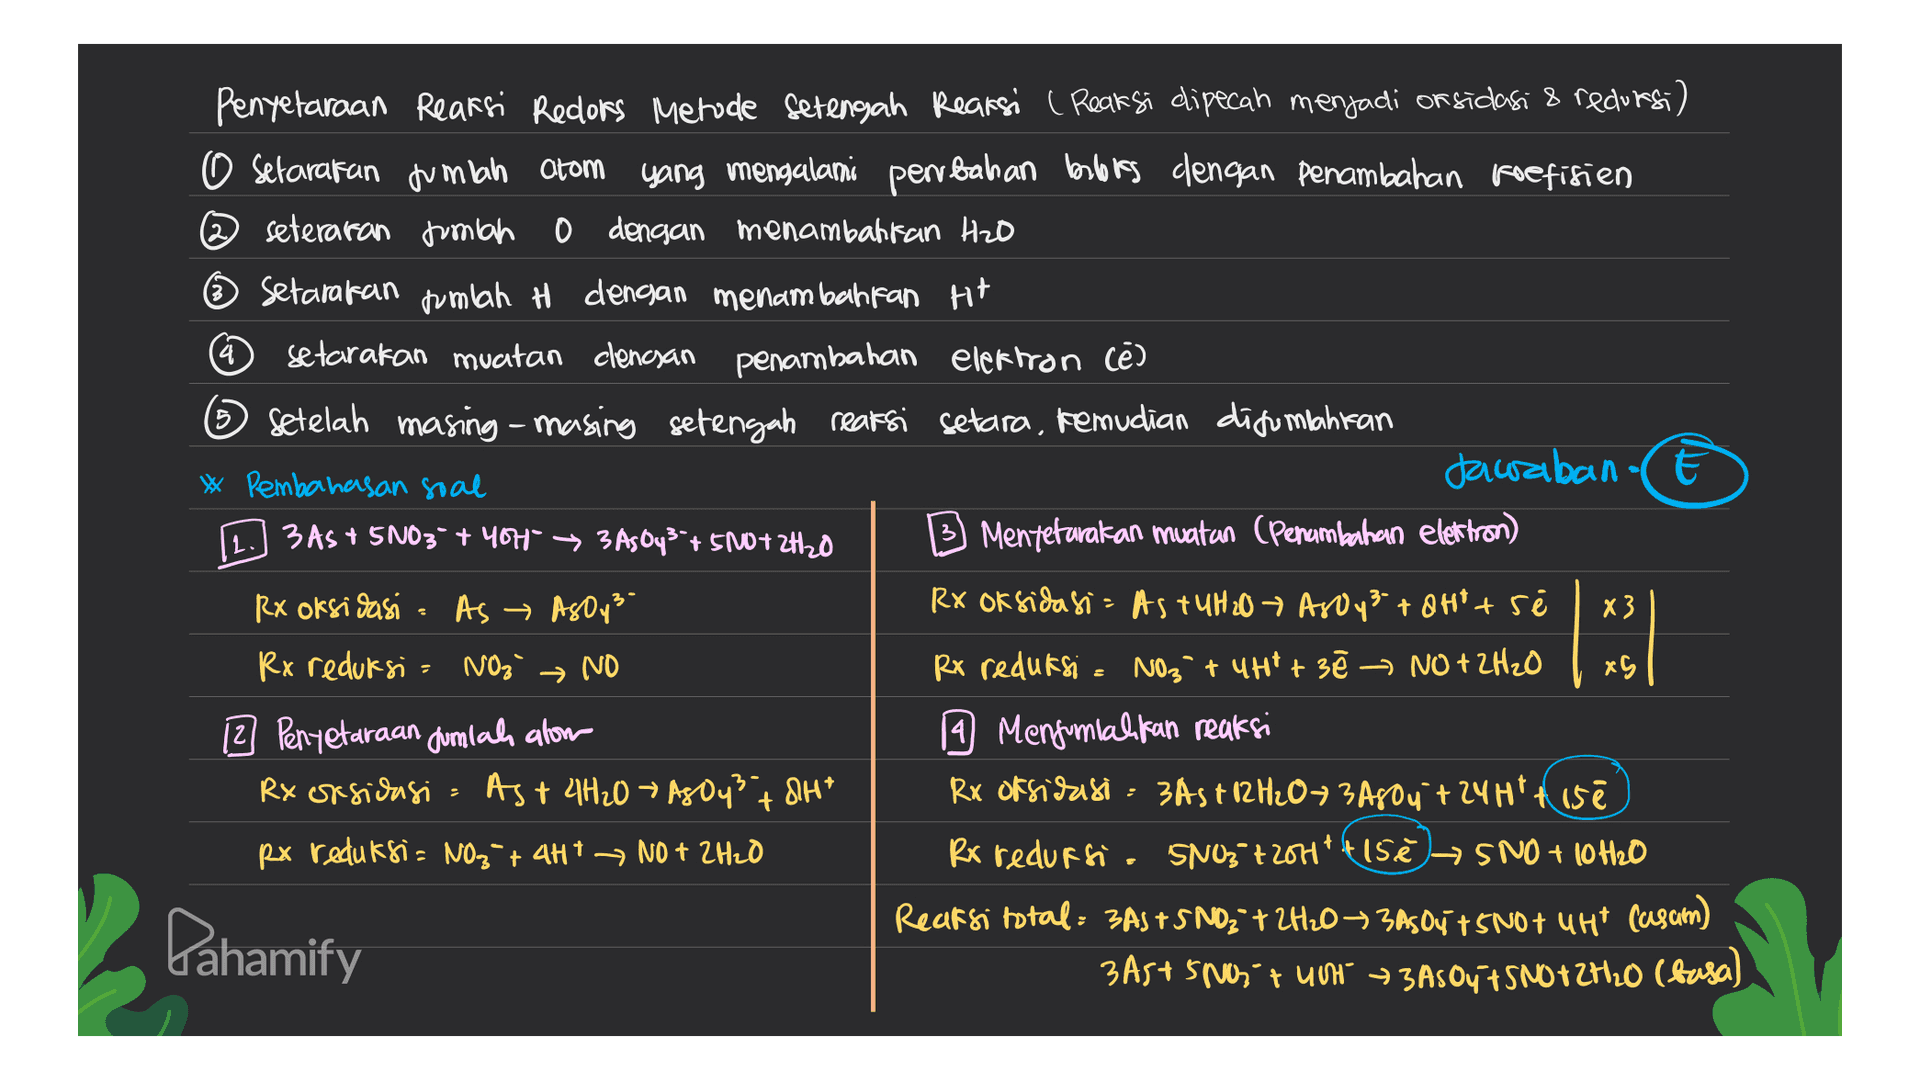 Penyetaraan Reaksi Redoks Metode Setengah Reaksi (Reaksi dipecah menjadi oksidasi & reduksi)
① Setarakan jumlah atom yang mengalami perubahan biloks dengan penambahan koefisien
② seterakan jumlah O dengan menambahkan H₂O
③ Setarakan jumlah H dengan menambahkan H⁺
④ setarakan muatan dengan penambahan elektron (ē)
⑤ Setelah masing-masing setengah reaksi setara, kemudian dijumlahkan
Jawaban = E
※ Pembahasan soal
1. 3As + 5NO₃⁻ + 4OH⁻ → 3AsO₄³⁻ + 5NO + 2H₂O
Rx oksidasi = As → AsO₄³⁻
Rx reduksi = NO₃⁻ → NO
2 Penyetaraan jumlah atom
Rx oksidasi = As + 4H₂O → AsO₄³⁻ + 8H⁺
Rx reduksi = NO₃⁻ + 4H⁺ → NO + 2H₂O
3 Menyetarakan muatan (Penambahan elektron)
Rx oksidasi = As + 4H₂O → AsO₄³⁻ + 8H⁺ + 5ē | x3 |
Rx reduksi = NO₃⁻ + 4H⁺ + 3ē → NO + 2H₂O | x5 |
4 Menjumlahkan reaksi
Rx oksidasi = 3As + 12H₂O → 3AsO₄⁻ + 24H⁺ + 15ē
Rx reduksi = 5NO₃⁻ + 20H⁺ + 15ē → 5NO + 10H₂O
Reaksi total = 3As + 5NO₃⁻ + 2H₂O → 3AsO₄⁻ + 5NO + 4H⁺ (asam)
3As + 5NO₃⁻ + 4OH⁻ → 3AsO₄⁻ + 5NO + 2H₂O (basa)
Pahamify